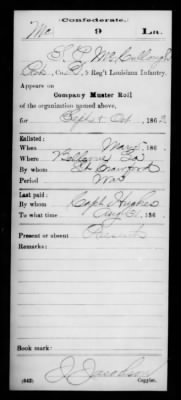 Confederate.
Mc 9 La.
McCullough
Co. 9 Reg't Louisiana Infantry.
Appears on
Company Muster Roll
of the organization named above,
for Sept & Oct, 1862
Enlisted:
When May, 186
Where La
By whom Lt Crawford
Period War
Last paid:
By whom Capt Hughes
To what time Aug 31, 186
Present or absent Present
Remarks:
Book mark:
(642) Copyist.